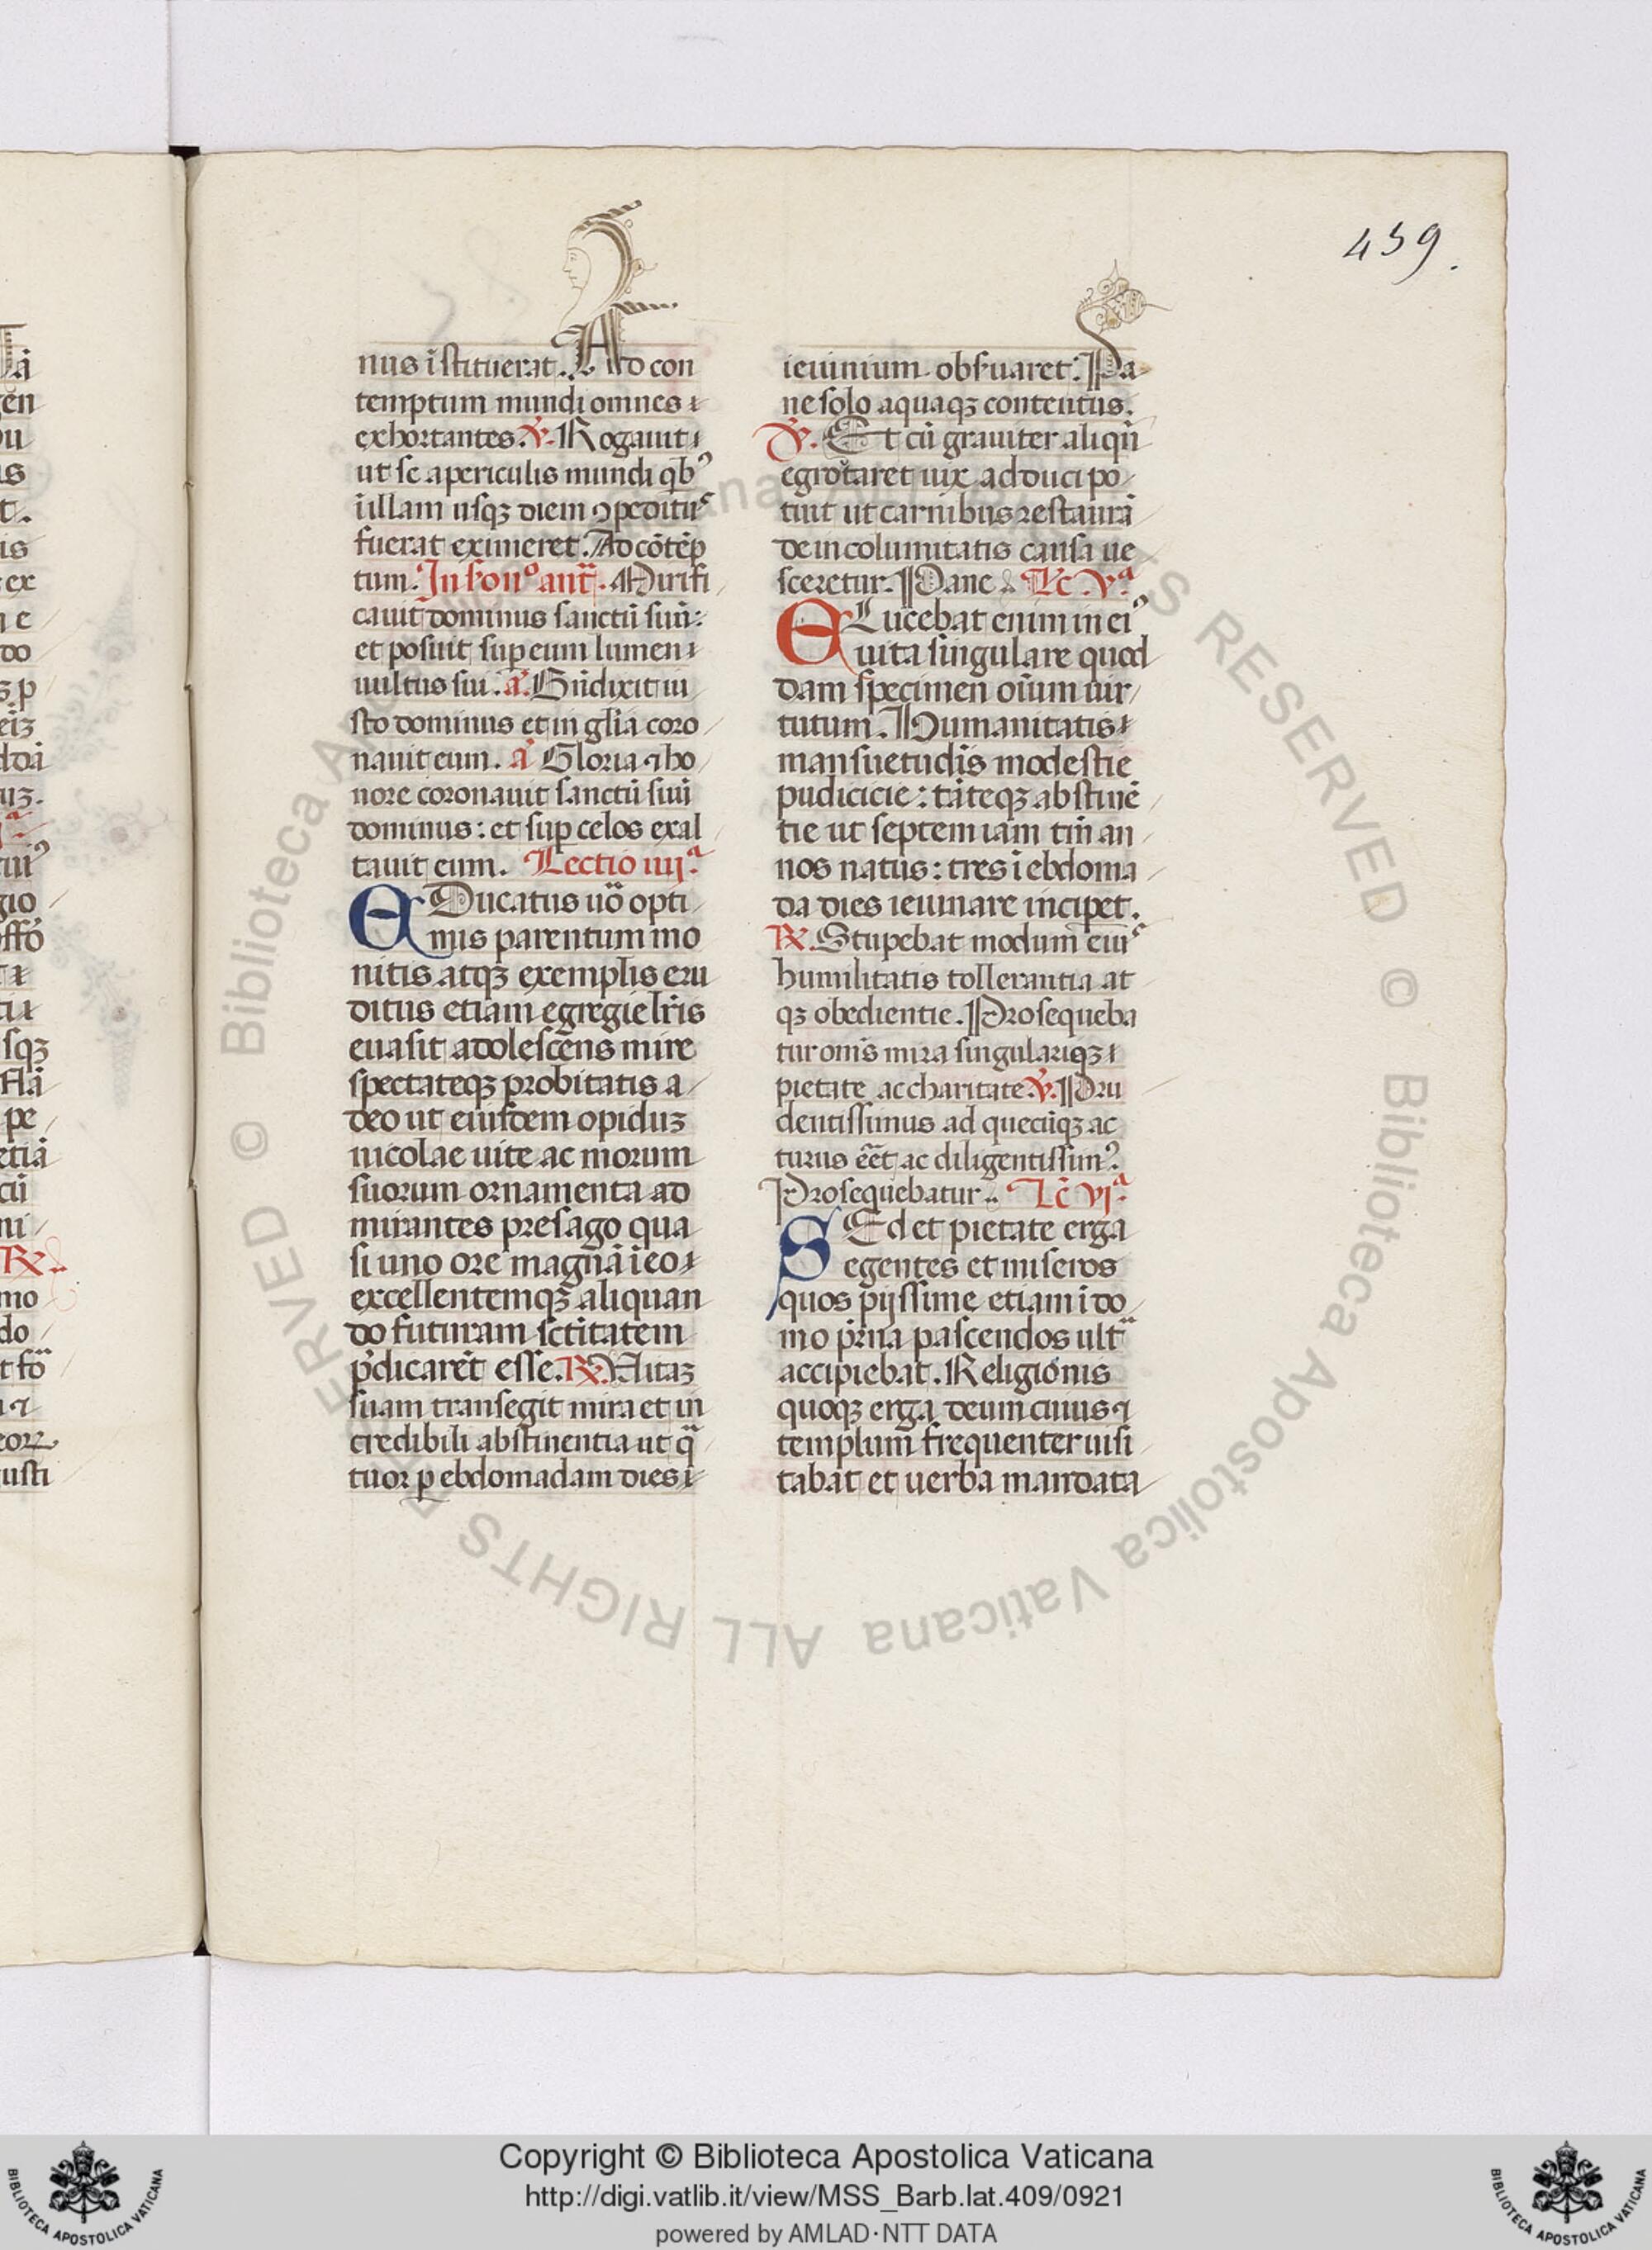 459.
nus ĩstituerat. Ad con
temptum mundi omnes
exhortantes. ℣. Rogauit
ut se a periculis mundi qb᷒
ĩ illam usqꝫ diem ꝯpeditus
fuerat eximeret. Ad cõtẽp
tum. an̄. Mirifi
cauit dominus sanctũ suũ:
et posuit suꝑ eum lumen
uultus sui. a᷒. Bñdixit iu
sto dominus et in glĩa coro
nauit eum. a᷒ Gloria ⁊ ho
nore coronauit sanctũ suũ
dominus: et suꝑ celos exal
tauit eum. Lectio iiijª.
EDucatus uo opti
mis parentum mo
nitis atqꝫ exemplis eru
ditus etiam egregie lr̃is
euasit adolescẽns mire
spectateqꝫ probitatis a
deo ut eiusdem opiduꝫ
nicolae uite ac morum
suorum ornamenta ad
mirantes presago qua
si uno ore magnã ĩ eo
excellentemqꝫ aliquan
do futuram sctĩtatem
p̃dicarẽt esse. ℟. Uitaꝫ
suam transegit mira et in
credibili abstinentia ut qª
tuor ꝑ ebdomadam dies ĩ
ieiunium obs̃uaret: Pa
ne solo aquaqꝫ contentus.
℣. Et cũ grauiter aliqñ
egrotaret uix adduci po
tuit ut carnibus restaurã
de incolumitatis causa ue
sceretur. Pane. Lc̃. vª
ELucebat enim in ei᷒
uita singulare quod
dam specimen oĩum uir
tutum. Humanitatis
mansuetudĩs modestie
pudicicie: tãteqꝫ abstinẽ
tie ut septem iam tm̃ an
nos natus: tres ĩ ebdoma
da dies ieiunare inciꝑet.
℟. Stupebat modum eius
humilitatis tollerantia at
qꝫ obedientie. Prosequeba
tur om̃s mira singulariqꝫ
pietate ac charitate. ℣. Pru
dentissimus ad quecũqꝫ ac
turus eẽt ac diligentissim᷒.
Prosequebatur. Lc̃ vjª.
SEd et pietate erga
egentes et miseros
quos pijssime etiam ĩ do
mo p̃rna pascendos ultª
accipiebat. Religionis
quoqꝫ erga deum cuius ⁊
templum frequenter uisi
tabat et uerba mandata
© Biblioteca Apostolica Vaticana ALL RIGHTS RESERVED © Biblioteca Apostolica Vaticana ALL RIGHTS RESERVED
Copyright © Biblioteca Apostolica Vaticana
http://digi.vatlib.it/view/MSS_Barb.lat.409/0921
powered by AMLAD·NTT DATA
BIBLIOTECA APOSTOLICA VATICANA
BIBLIOTECA APOSTOLICA VATICANA